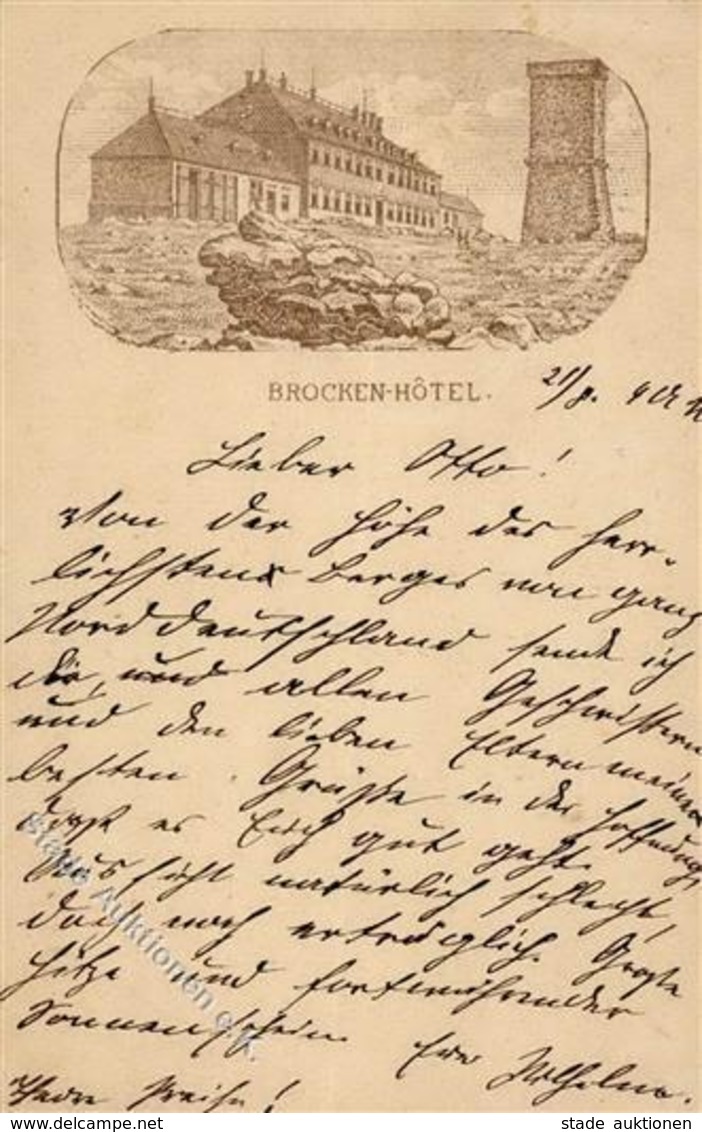 BROCKEN-HÔTEL.
21/8.
Lieber Otto!
Von der Höhe des herr-
lichsten Berges von ganz
Norddeutschland sende ich
dir, und allen Geschwistern
und den lieben Eltern meine
besten Grüße in der Hoffnung,
daß es Euch gut geht.
Aussicht natürlich schlecht,
doch noch erträglich. Große
Hitze und fortwährender
Sonnenschein. Euer Wilhelm.
Theure Preise!
stade Auktionen e.K.
DELCAMPE.NET
stade auktionen